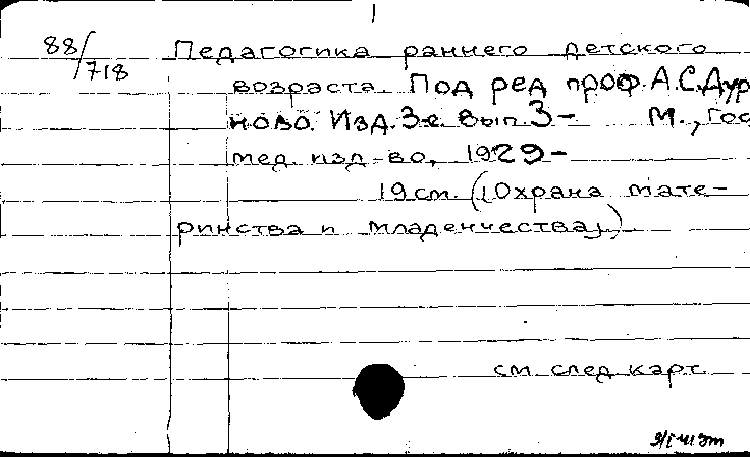 1
88/718
Педагогика раннего детского
возраста. Под ред проф. А.С.Дур
ново. Изд. 3-е. вып. 3- М., Гос
мед. изд-во, 1929-
19 см. (Охрана мате-
ринства и младенчества).
см. след карт.